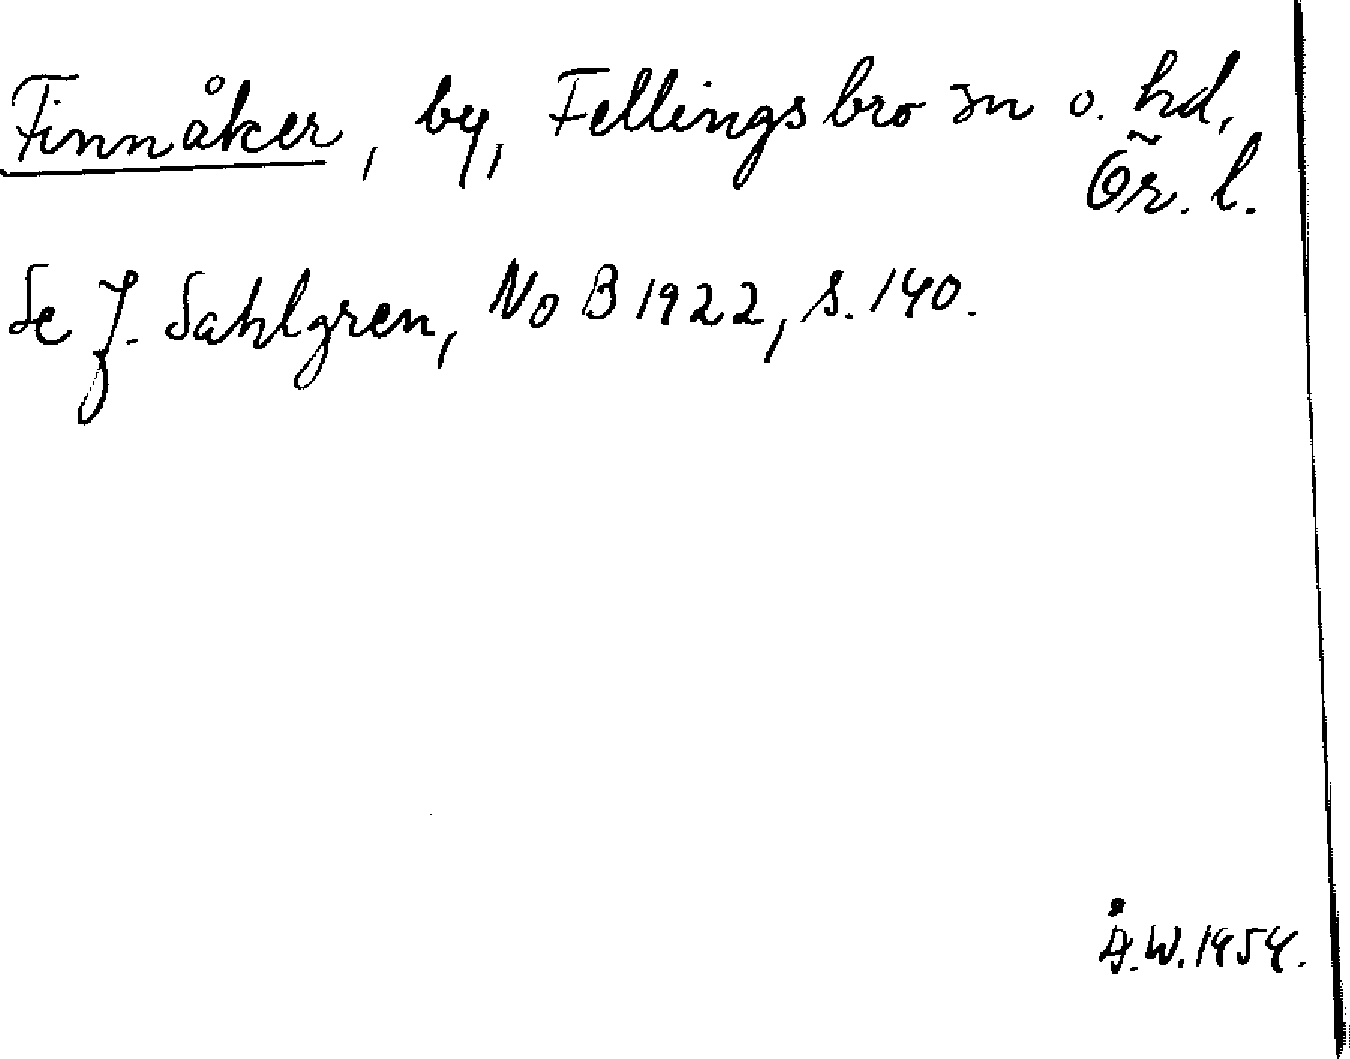 Finnåker, by, Fellingsbro sn o. hd,
Ör. l.
Se J. Sahlgren, NoB 1922, s. 140.
Å.W. 1954.